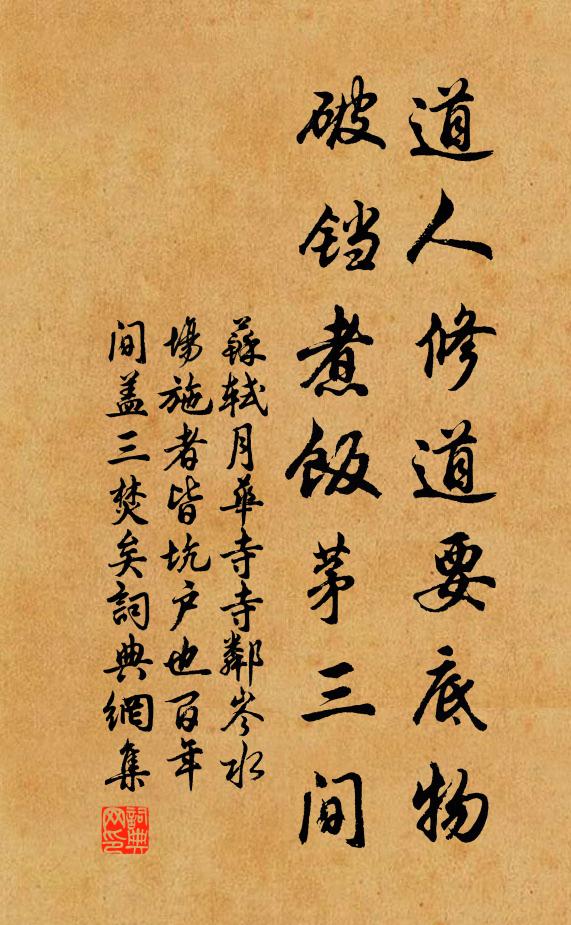 道人修道要底物
破铛煮飯茅三间
蘇軾月華寺寺鄰岑水
場施者皆坑户也百年
间盖三焚矣詞典網集
詞典网印